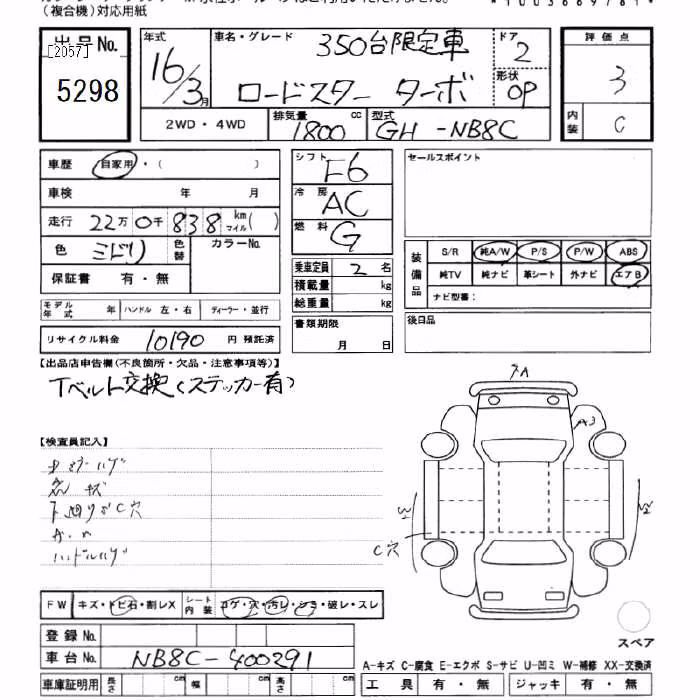 (複合機)対応用紙
*1003669781*
出品No. [2057]
5298
年式 16/3月
車名・グレード 350台限定車
ロードスター ターボ
ドア 2
形状 OP
2WD・4WD
排気量 1800 cc
型式 GH-NB8C
評価点 3
内装 C
車歴 自家用・( )
車検 年 月
走行 22万0千838 km マイル( )
色 ミドリ 色替 カラーNo.
保証書 有・無
シフト F6
冷房 AC
燃料 G
乗車定員 2 名
積載量 kg
総重量 kg
書類期限 月 日
モデル年式 年 ハンドル 左・右 ディーラー・並行
リサイクル料金 10190 円 預託済
セールスポイント
装備品 S/R 純A/W P/S P/W ABS
純TV 純ナビ 革シート 外ナビ エアB
ナビ型番:
後日品
【出品店申告欄(不良箇所・欠品・注意事項等)】
Tベルト交換(ステッカー有)
【検査員記入】
ハンドルハゲ
A3
W
W
C穴
FW キズ・トビ石・割レX シート内装 コゲ・穴・汚レ・シミ・破レ・スレ
登録No.
車台No. NB8C-400291
車庫証明用 長さ cm 幅 cm 高さ cm
スペア
A-キズ C-腐食 E-エクボ S-サビ U-凹ミ W-補修 XX-交換済
工具 有・無 ジャッキ 有・無